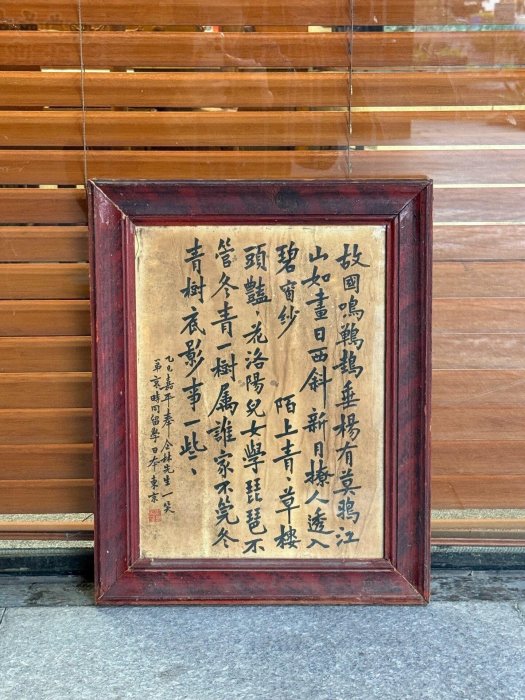 故國鳴鷤鴂垂楊有莫鴉江
山如畫日西斜新月撩人透入
碧窗紗 陌上青、草樓
頭豔、花洛陽兒女學琵琶不
管冬青一樹属誰家不筦冬
青樹底影事一些、
乙巳嘉平奉 合林先生一笑
弟亥時同留學日本東京